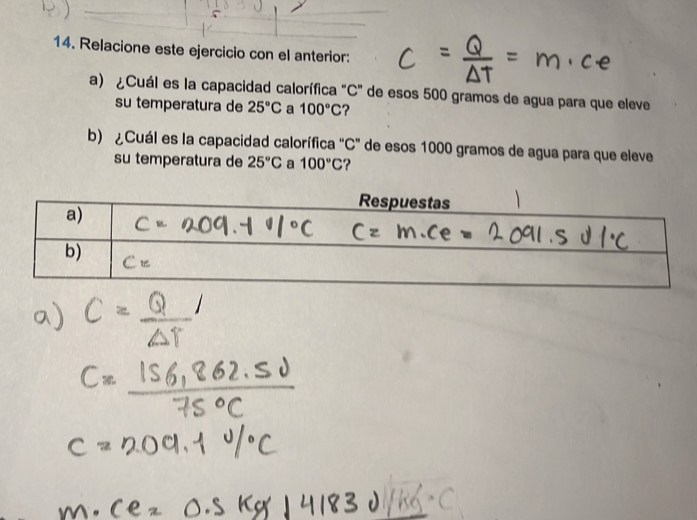 14. Relacione este ejercicio con el anterior:
C = Q/ΔT = m·ce
a) ¿Cuál es la capacidad calorífica "C" de esos 500 gramos de agua para que eleve
su temperatura de 25°C a 100°C?
b) ¿Cuál es la capacidad calorífica "C" de esos 1000 gramos de agua para que eleve
su temperatura de 25°C a 100°C?
Respuestas
a) C = 209.1 J/°C C = m.ce = 2091.5 J/°C
b) C =
a) C = Q/ΔT
C = 156,862.5J / 75°C
C = 209.1 J/°C
m.ce = 0.5 Kg 4183 J/KG·C